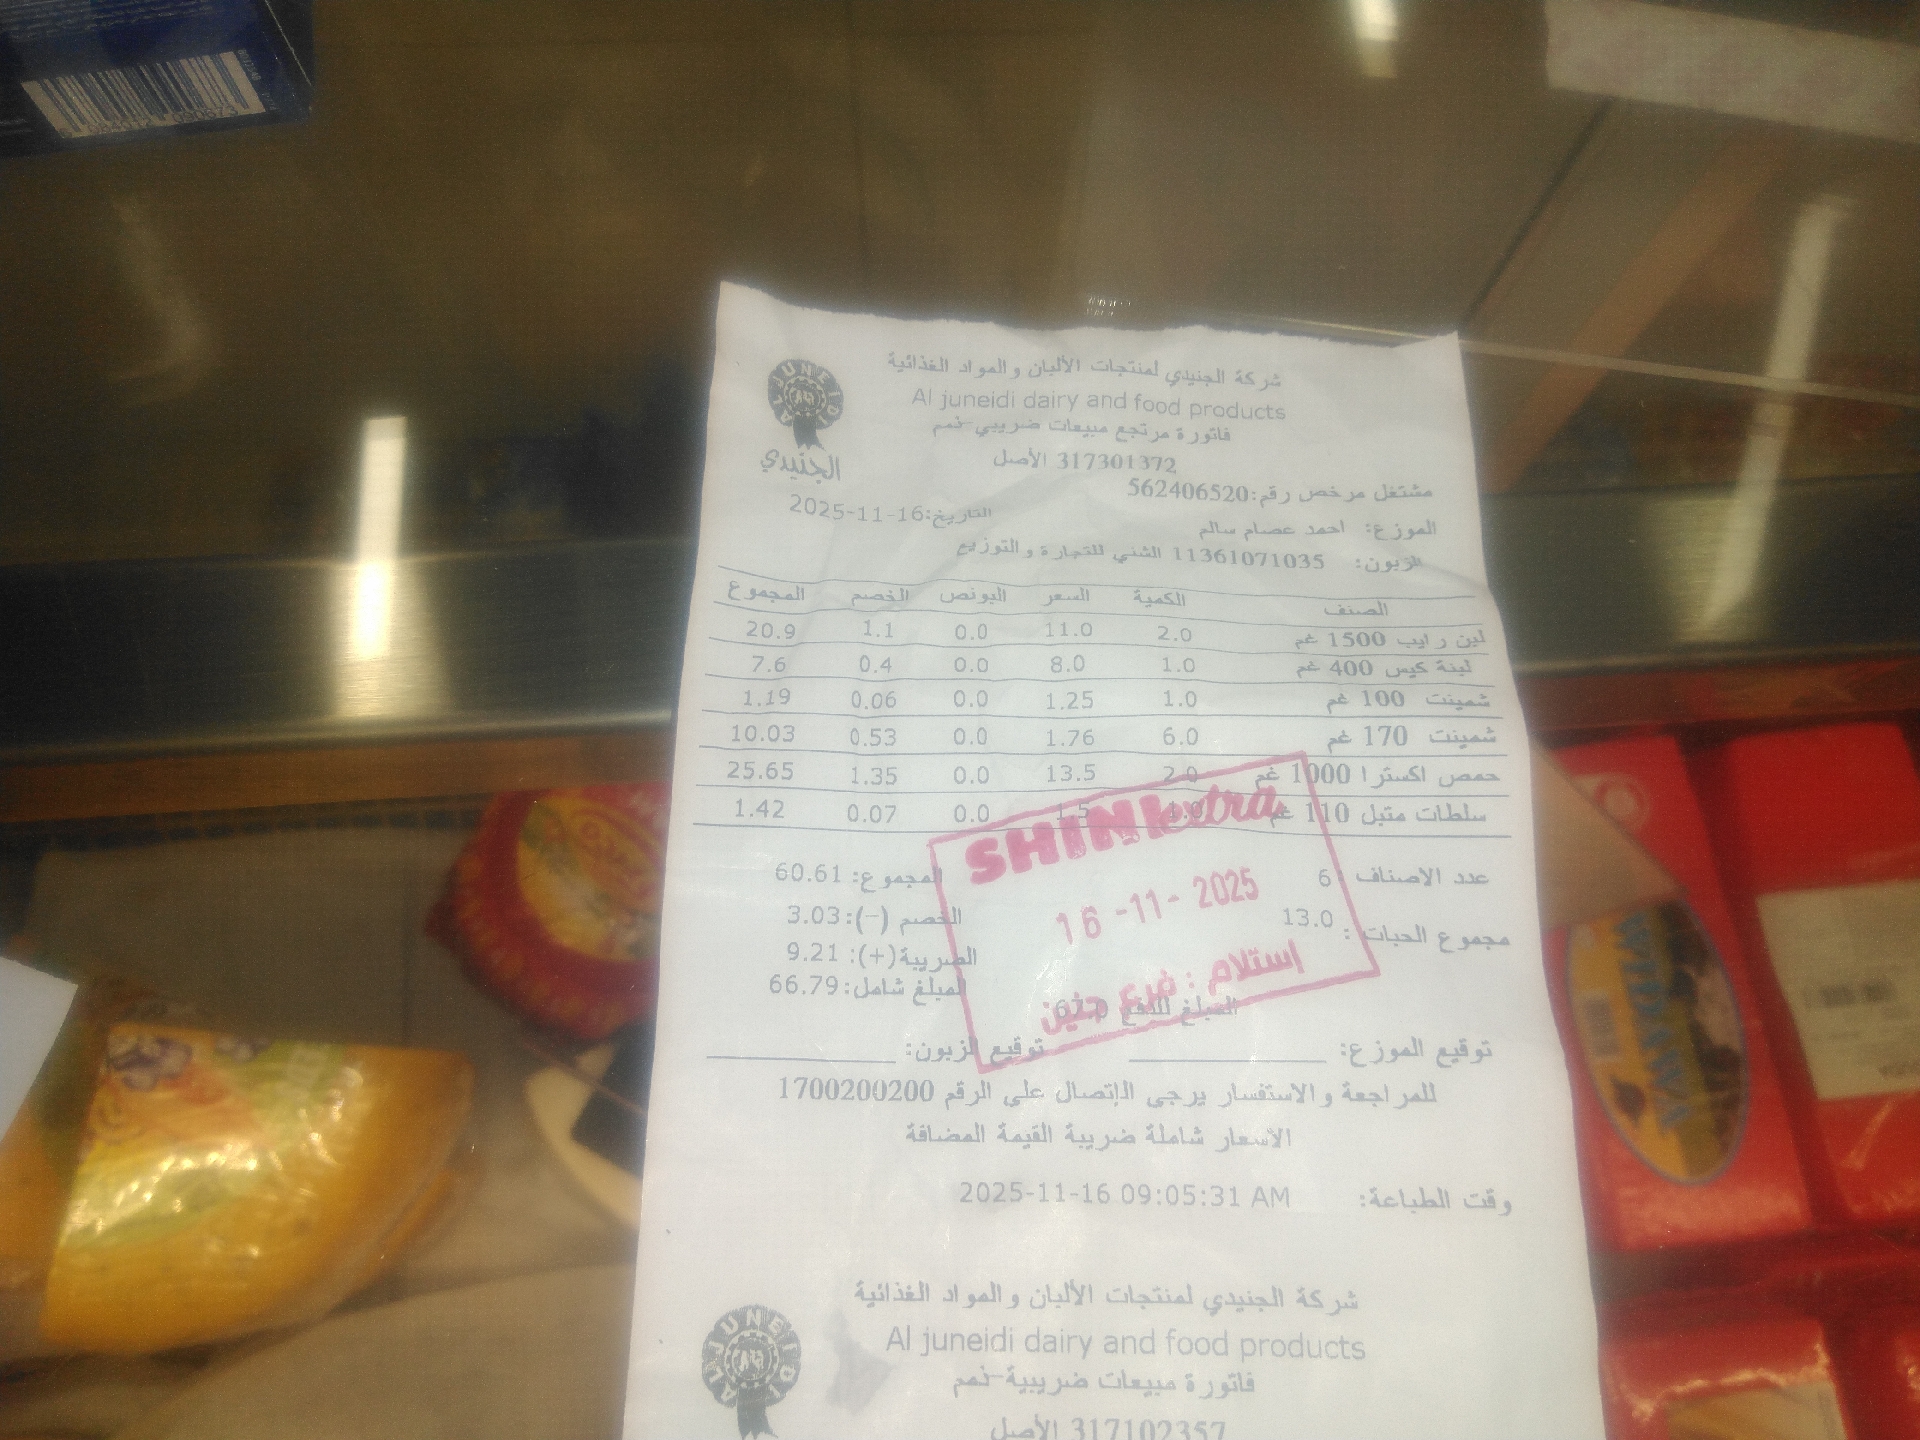 شركة الجنيدي لمنتجات الألبان والمواد الغذائية
AL JUNEIDI
Al juneidi dairy and food products
فاتورة مرتجع مبيعات ضريبي-نمم
الجنيدي
317301372 الأصل
مشتغل مرخص رقم:562406520
التاريخ:2025-11-16
الموزع: احمد عصام سالم
الزبون: 11361071035 الشني للتجارة والتوزيع
الصنف الكمية السعر البونص الخصم المجموع
لبن رايب 1500 غم 2.0 11.0 0.0 1.1 20.9
لبنة كيس 400 غم 1.0 8.0 0.0 0.4 7.6
شمينت 100 غم 1.0 1.25 0.0 0.06 1.19
شمينت 170 غم 6.0 1.76 0.0 0.53 10.03
حمص اكسترا 1000 غم 2.0 13.5 0.0 1.35 25.65
سلطات متبل 110 غم 1.0 1.5 0.0 0.07 1.42
SHINI extra
16 -11- 2025
استلام : فرع جنين
عدد الاصناف : 6 المجموع: 60.61
مجموع الحبات : 13.0 الخصم (-): 3.03
الضريبة(+): 9.21
المبلغ شامل: 66.79
المبلغ للدفع 67.0
توقيع الموزع: توقيع الزبون:
للمراجعة والاستفسار يرجى الإتصال على الرقم 1700200200
الاسعار شاملة ضريبة القيمة المضافة
وقت الطباعة: 2025-11-16 09:05:31 AM
شركة الجنيدي لمنتجات الألبان والمواد الغذائية
AL JUNEIDI
Al juneidi dairy and food products
فاتورة مبيعات ضريبية-نمم
317102357 الأصل